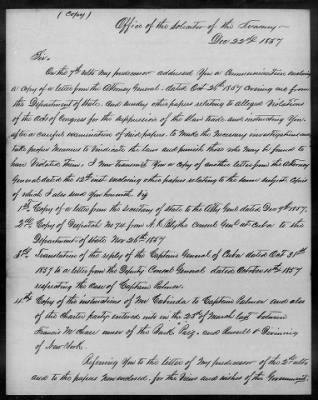 (Copy)
Office of the Solicitor of the Treasury
Dec 22nd 1857
Sir.
On the 7th ulto my predecessor addressed you a communication enclosing
a copy of a letter from the Attorney General dated Oct 26th 1857 covering one from
the Department of State, and sundry other papers relating to alleged violations
of the acts of Congress for the suppression of the Slave trade and instructing you
after a careful examination of said papers, to make the necessary investigation and
take proper measures to vindicate the laws and punish those who may be found to
have violated them. I now transmit you a copy of another letter from the Attorney
General dated the 12th inst enclosing other papers relating to the same subject, copies
of which I also send you herewith viz
1st Copy of a letter from the Secretary of State to the Atty Genl dated Dec 9th 1857.
2nd Copy of Despatch No 74 from A. K. Blythe Consul Genl at Cuba to the
Department of State Nov 25th 1857
3rd Translation of the reply of the Captain General of Cuba dated Oct 31st
1857 to a letter from the Deputy Consul General dated October 10th 1857
respecting the case of Captain Palmer.
4th Copy of the instructions of Mr Cabieda to Captain Palmer and also
of the charter party entered into on the 25th of March last between
Francis McShane owner of the Bark and Russell &
of New York.
Referring you to the letter of my predecessor of the ulto
and to the papers now enclosed, for the views and wishes of the Government,